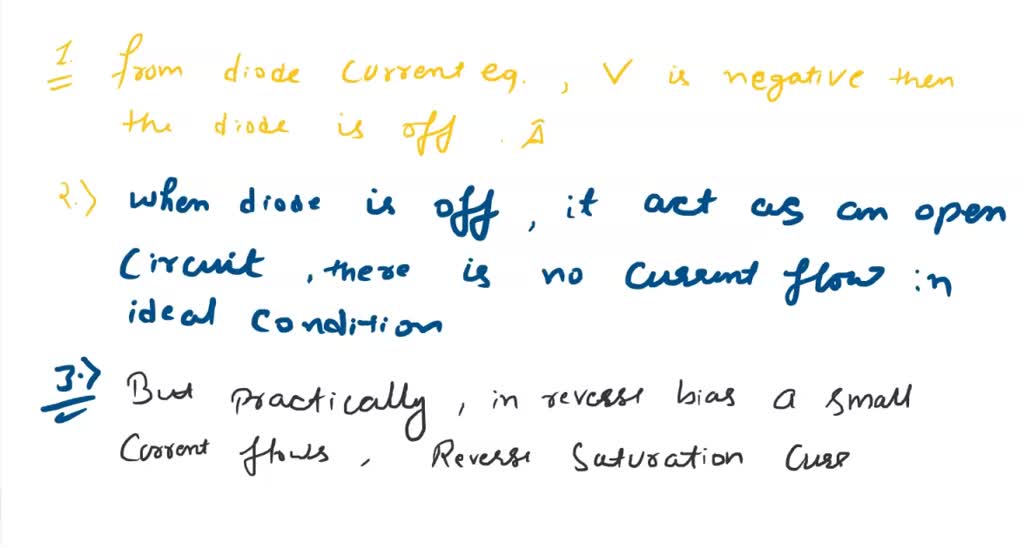 1. from diode current eq. , V is negative then
the diode is off .
2.) when diode is off , it act as an open
Circuit , there is no current flow in
ideal condition
3.) But practically , in reverse bias a small
Current flows , Reverse Saturation Curr